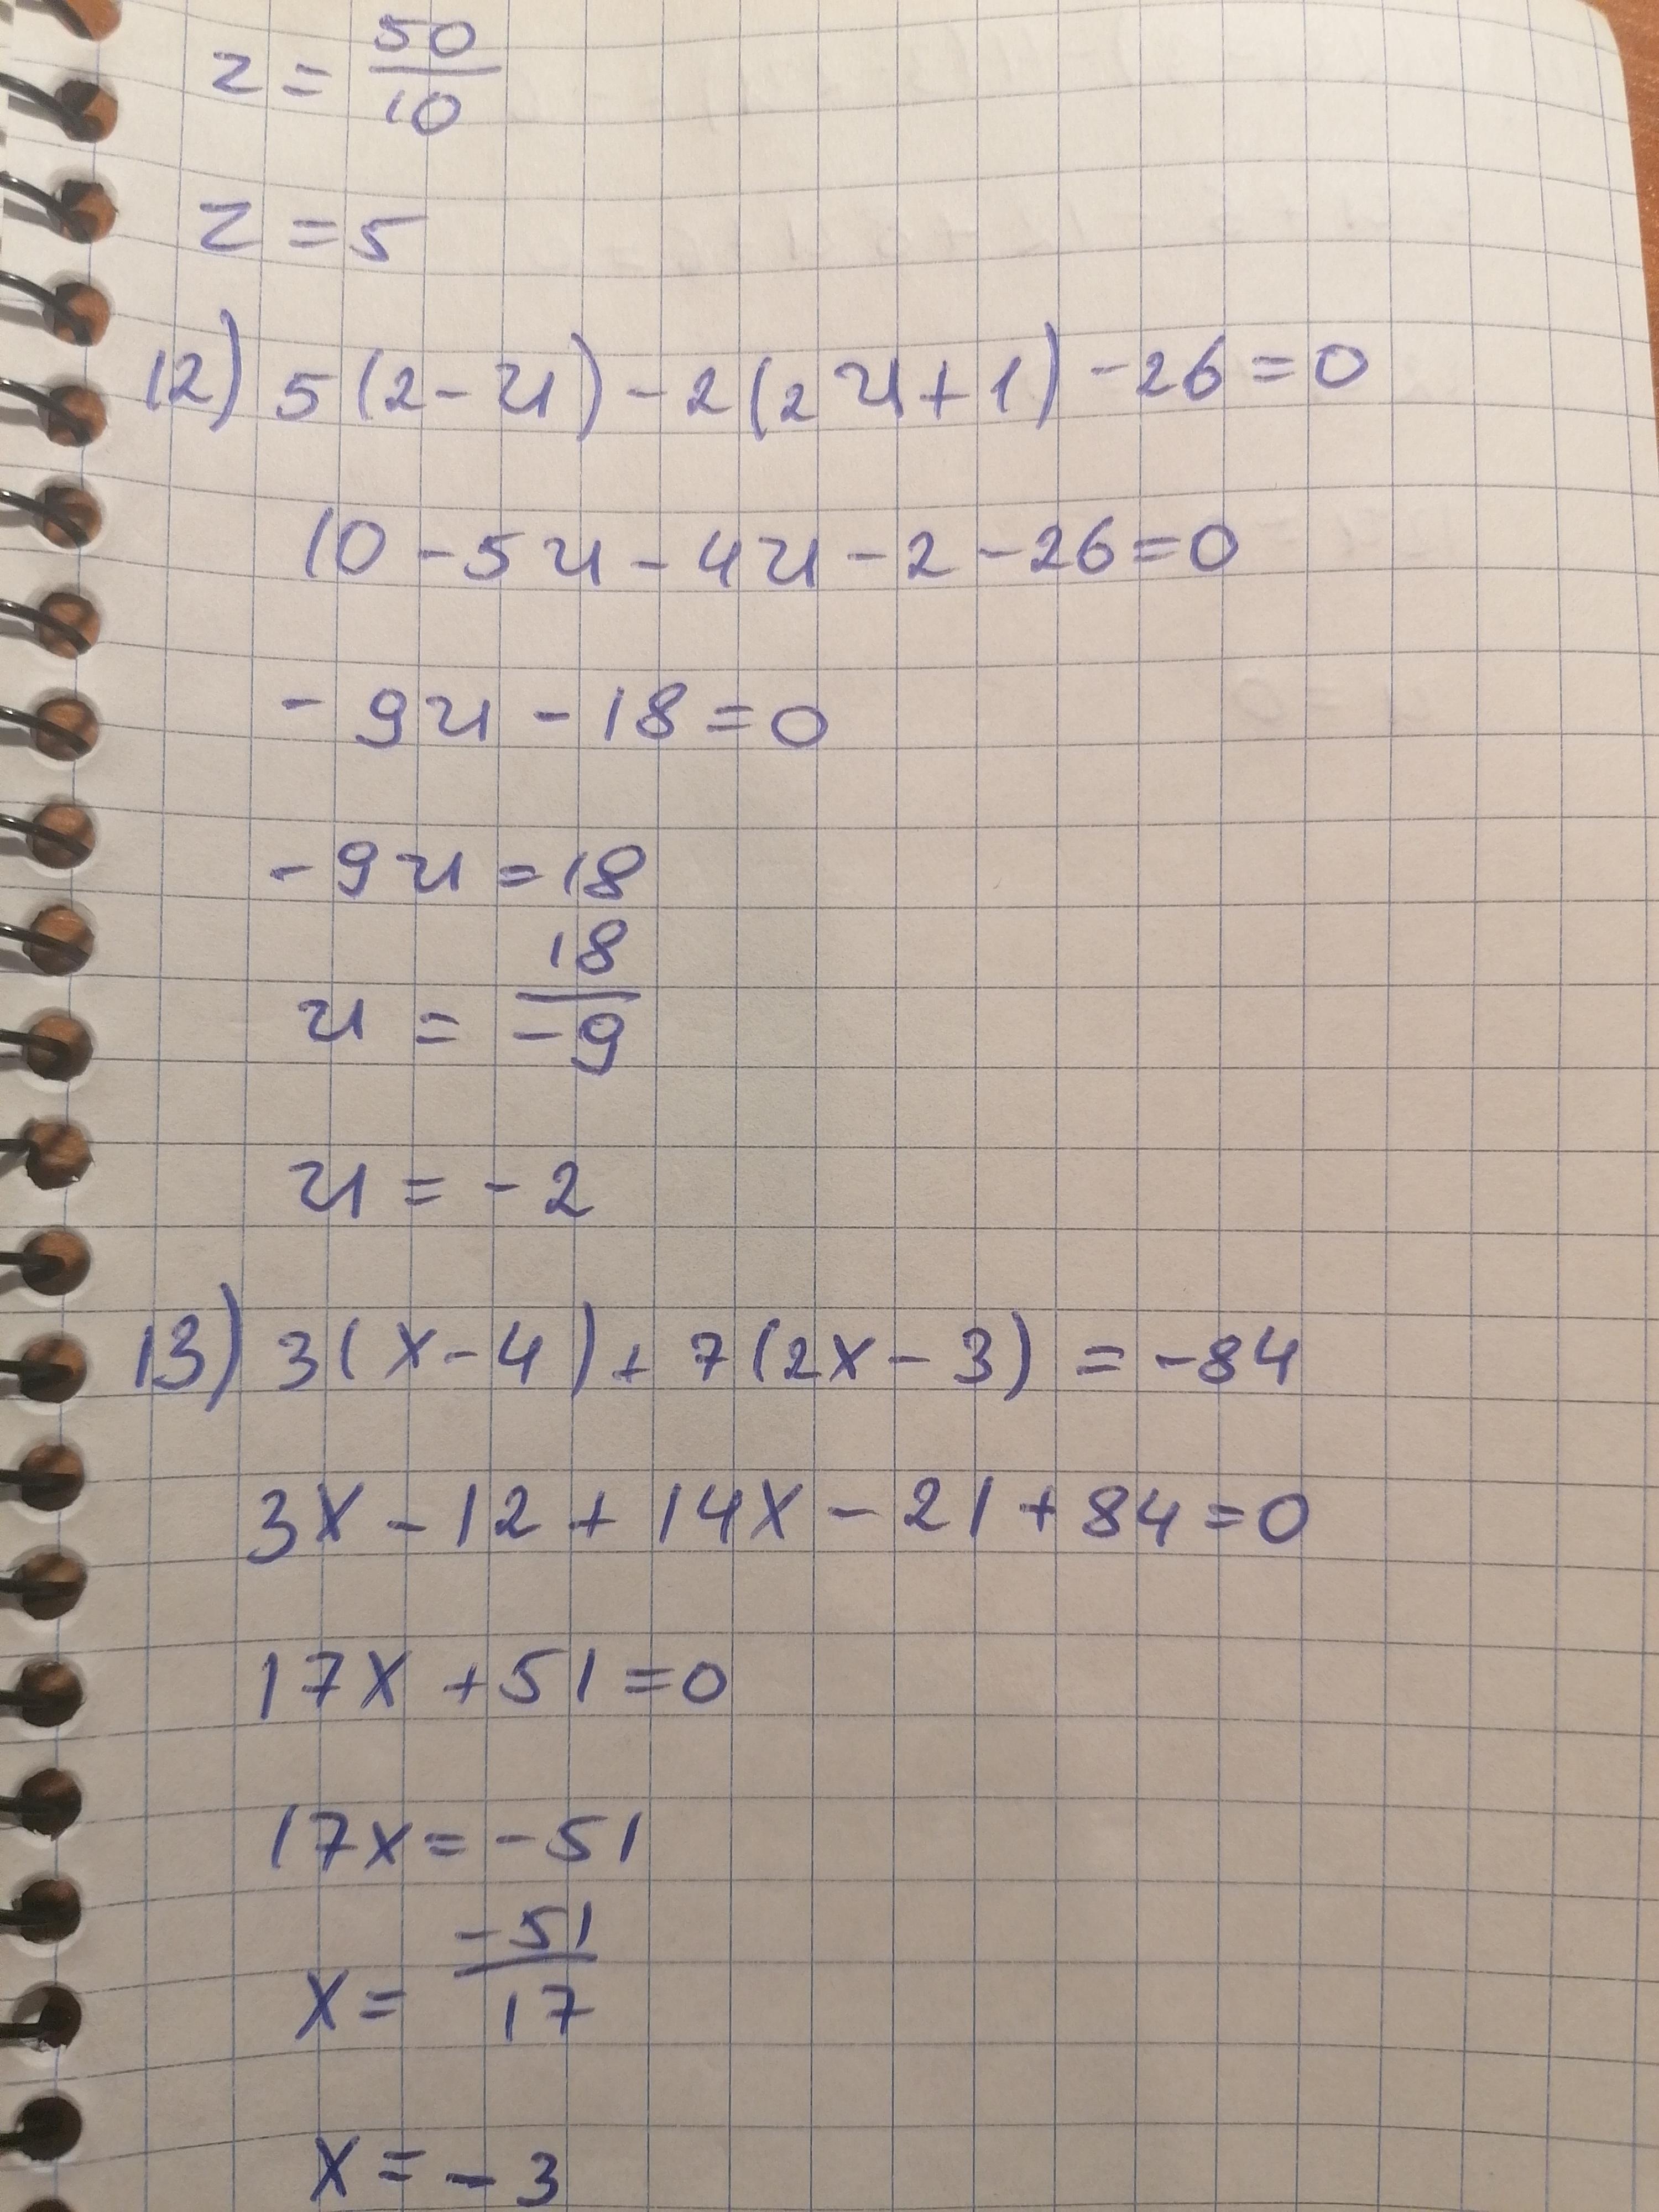 z = 50/10
z = 5
12) 5(2-u) - 2(2u+1) - 26 = 0
10 - 5u - 4u - 2 - 26 = 0
- 9u - 18 = 0
- 9u = 18
u = 18/-9
u = - 2
13) 3(x-4) + 7(2x-3) = -84
3x - 12 + 14x - 21 + 84 = 0
17x + 51 = 0
17x = - 51
x = -51/17
x = - 3